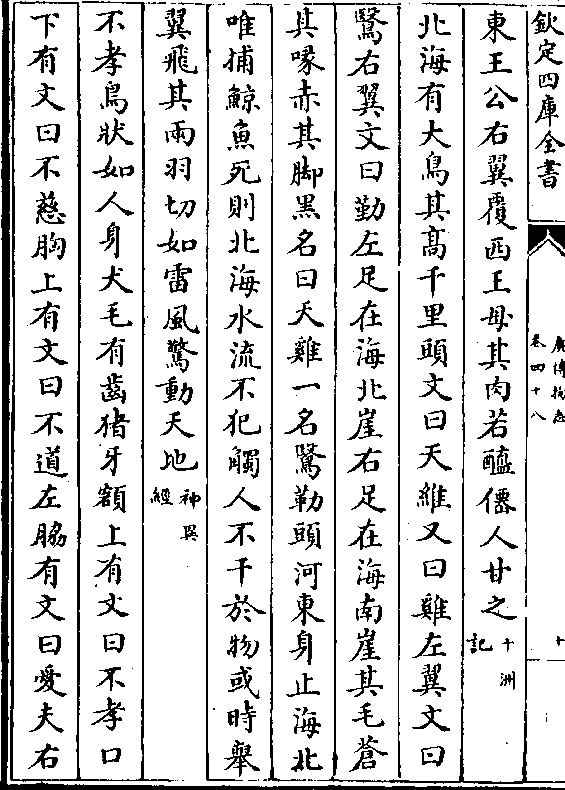 欽定四庫全書
廣博物志
卷四十八
十
東王公右翼覆西王母其肉若醯僊人甘之十洲記
北海有大鳥其高千里頭文曰天維又曰雞左翼文曰
鷖右翼文曰勤左足在海北崖右足在海南崖其毛蒼
其喙赤其脚黑名曰天雞一名鷖勒頭河東身止海北
唯捕鯨魚死則北海水流不犯觸人不干於物或時舉
翼飛其雨羽切如雷風驚動天地神異經
不孝鳥狀如人身犬毛有齒猪牙額上有文曰不孝口
下有文曰不慈胸上有文曰不道左脇有文曰愛夫右